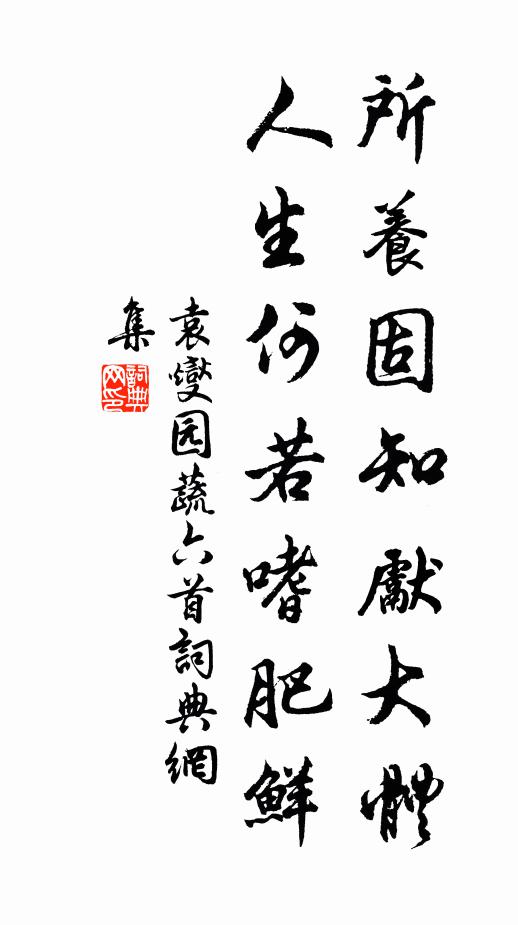 所養固知獻大體
人生何若嗜肥鮮
袁燮园蔬六首詞典網
集
詞典
网印